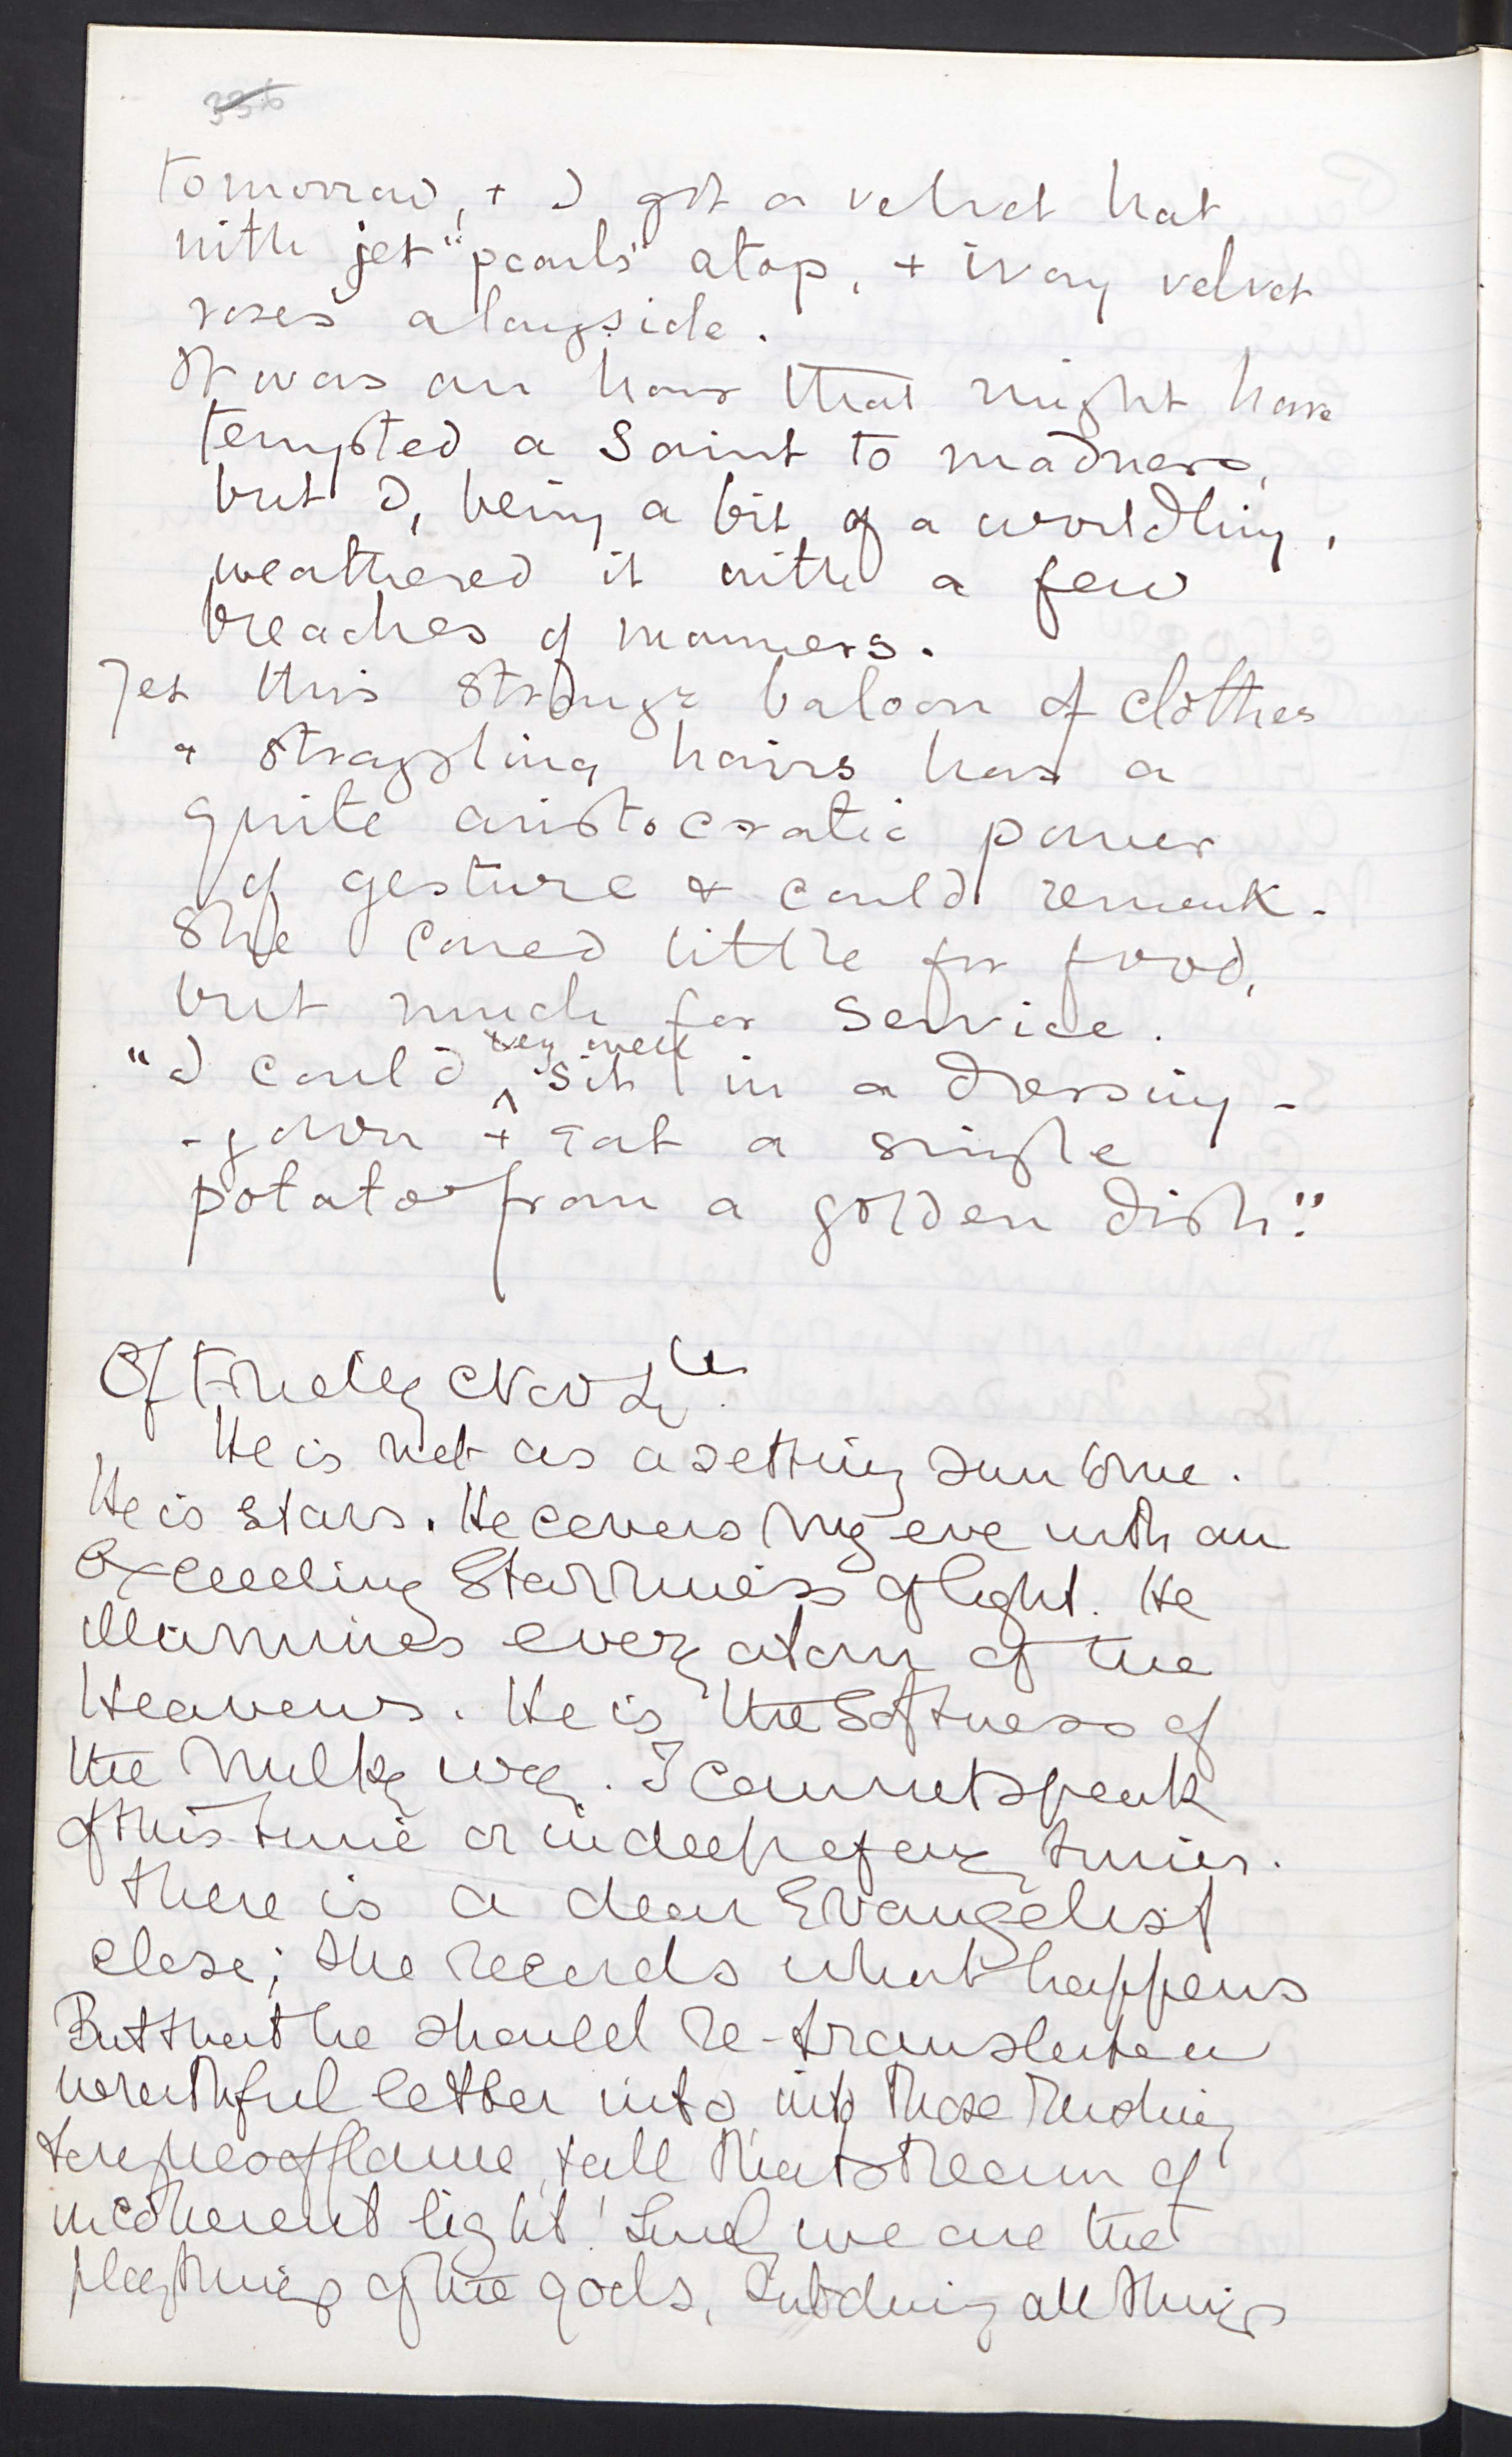 336
tomorrow, + I got a velvet hat
with jet "pearls" atop, + ivory velvet
roses alongside.
It was an hour that might have
tempted a Saint to madness,
but I, being a bit of a worldling,
weathered it with a few
breaches of manners.
Yet this strange baloon of clothes
& straggling hairs has a
quite aristocratic power
of gesture & could remark -
She cared little for food,
but much for Service.
very well
"I could ^ sit in a dressing -
- gown + eat a single
potato from a golden dish."
Of Finely
He is not as a setting sun to me.
He is stars. He covers my eve with an
exceeding Starriness of light. He
illumines every atom of the
Heavens. He is the Softness of
the Milky way. I cannot speak
of this time or indeed of any times.
There is a dear Evangelist
close; she records what happens
But that he should re-translate a
wrathful letter into into those rushing
tongues of flame, & all that stream of
incoherent light! Surely we are the
playthings of the gods, Subduing all things